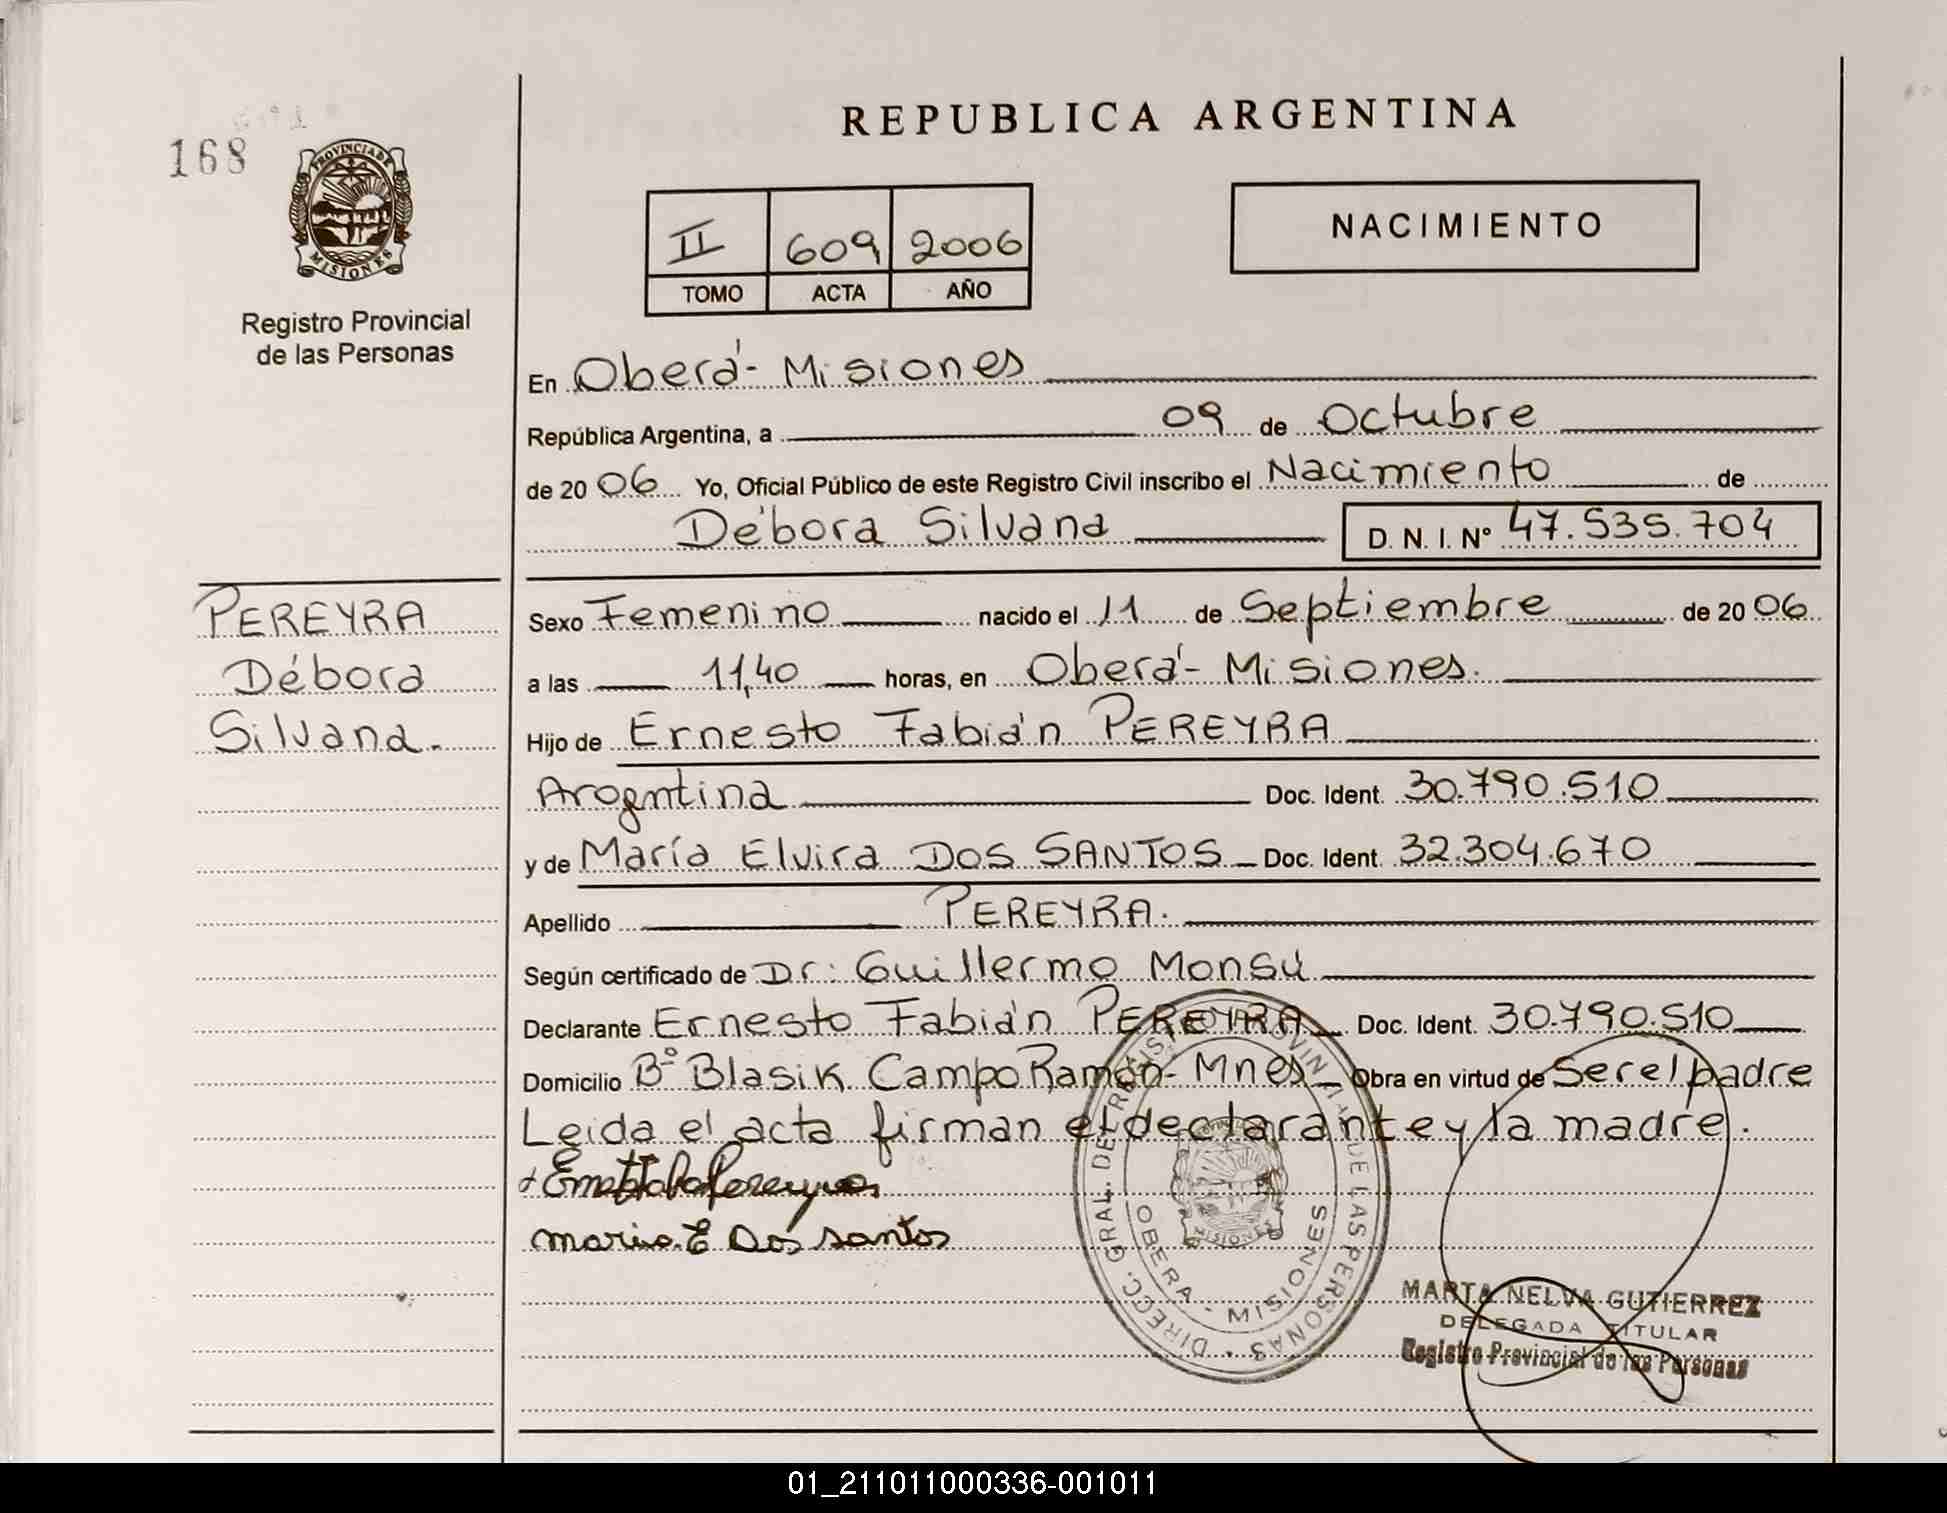 REPUBLICA ARGENTINA
168
PROVINCIA DE MISIONES
Registro Provincial
de las Personas
II 609 2006
TOMO ACTA AÑO
NACIMIENTO
En Oberá - Misiones
República Argentina, a 09 de Octubre
de 20 06 Yo, Oficial Público de este Registro Civil inscribo el Nacimiento de
Débora Silvana D. N. I. Nº 47.535.704
PEREYRA
Débora
Silvana.
Sexo Femenino nacido el 11 de Septiembre de 20 06
a las 11,40 horas, en Oberá - Misiones.
Hijo de Ernesto Fabián PEREYRA
Arogntina Doc. Ident. 30.790.510
y de María Elvira DOS SANTOS Doc. Ident. 32.304.670
Apellido PEREYRA.
Según certificado de Dr: Guillermo Monsú
Declarante Ernesto Fabián PEREYRA Doc. Ident. 30.790.510
Domicilio Bº Blasik Campo Ramón - Mnes Obra en virtud de Ser el padre
Leida el acta firman el declarante y la madre.
Pereyra
maria E Dos santos
DIRECC. GRAL. DE REGISTRO PROVINCIAL DE LAS PERSONAS
OBERA - MISIONES
MISIONES
MARTA NELVA GUTIERREZ
DELEGADA TITULAR
Registro Provincial de las Personas
01_211011000336-001011